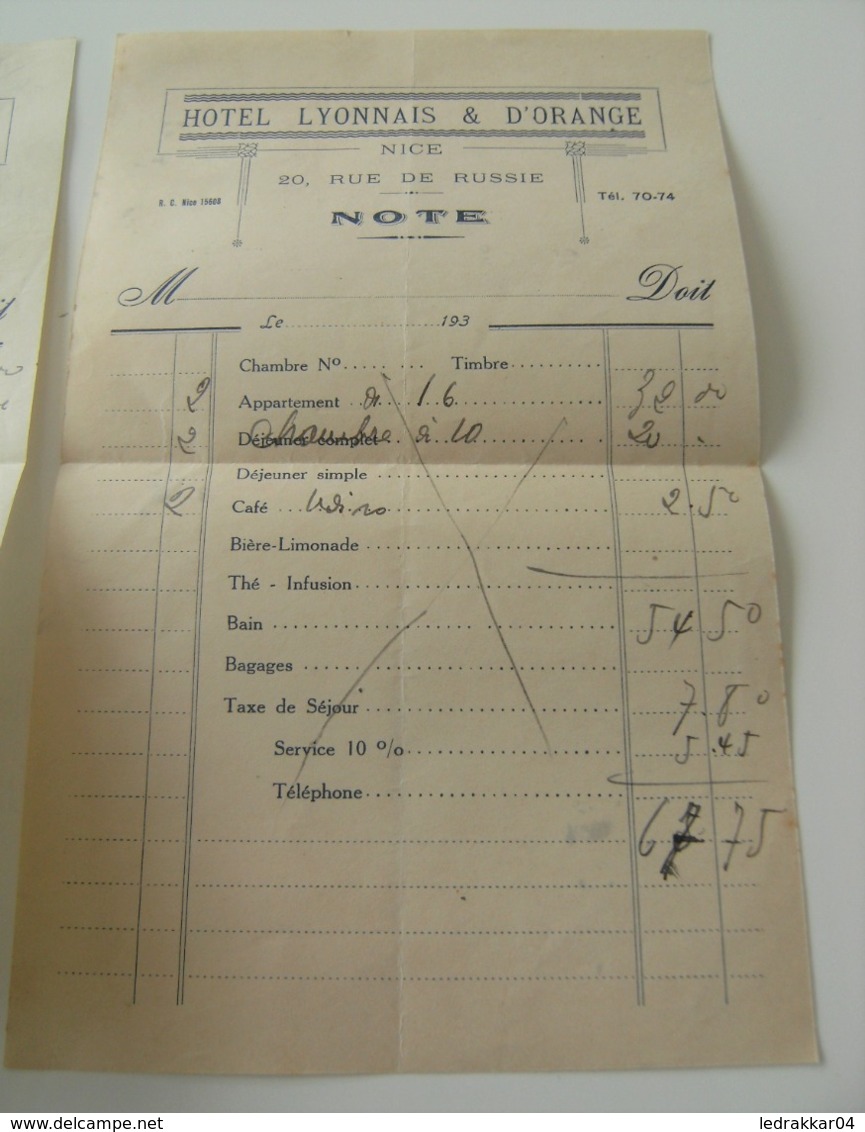 HOTEL LYONNAIS & D'ORANGE
NICE
20, RUE DE RUSSIE
R. C. Nice 15608
Tél. 70-74
NOTE
M Doit
Le 193
Chambre Nº Timbre
2 Appartement à 16 32 00
2 Déjeuner complet chambre à 10 20 -
Déjeuner simple
2 Café 2.50
Bière-Limonade
Thé - Infusion
Bain 54 50
Bagages
Taxe de Séjour 7.80
Service 10 % 5.45
Téléphone
67 75
www.delcampe.net
ledrakkar04